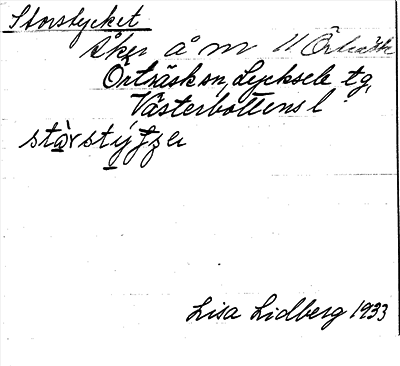 Storstycket
Åker å m 11 Örträsk
Örträsk sn, Lycksele tg,
Västerbottens l
Lisa Lidberg 1933